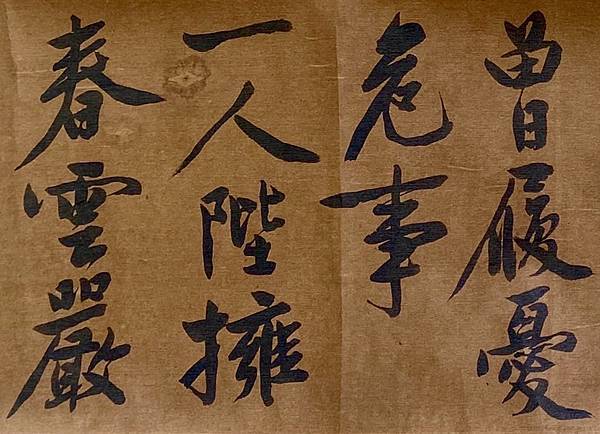 曾履憂
危事
一人陛擁
春雲嚴